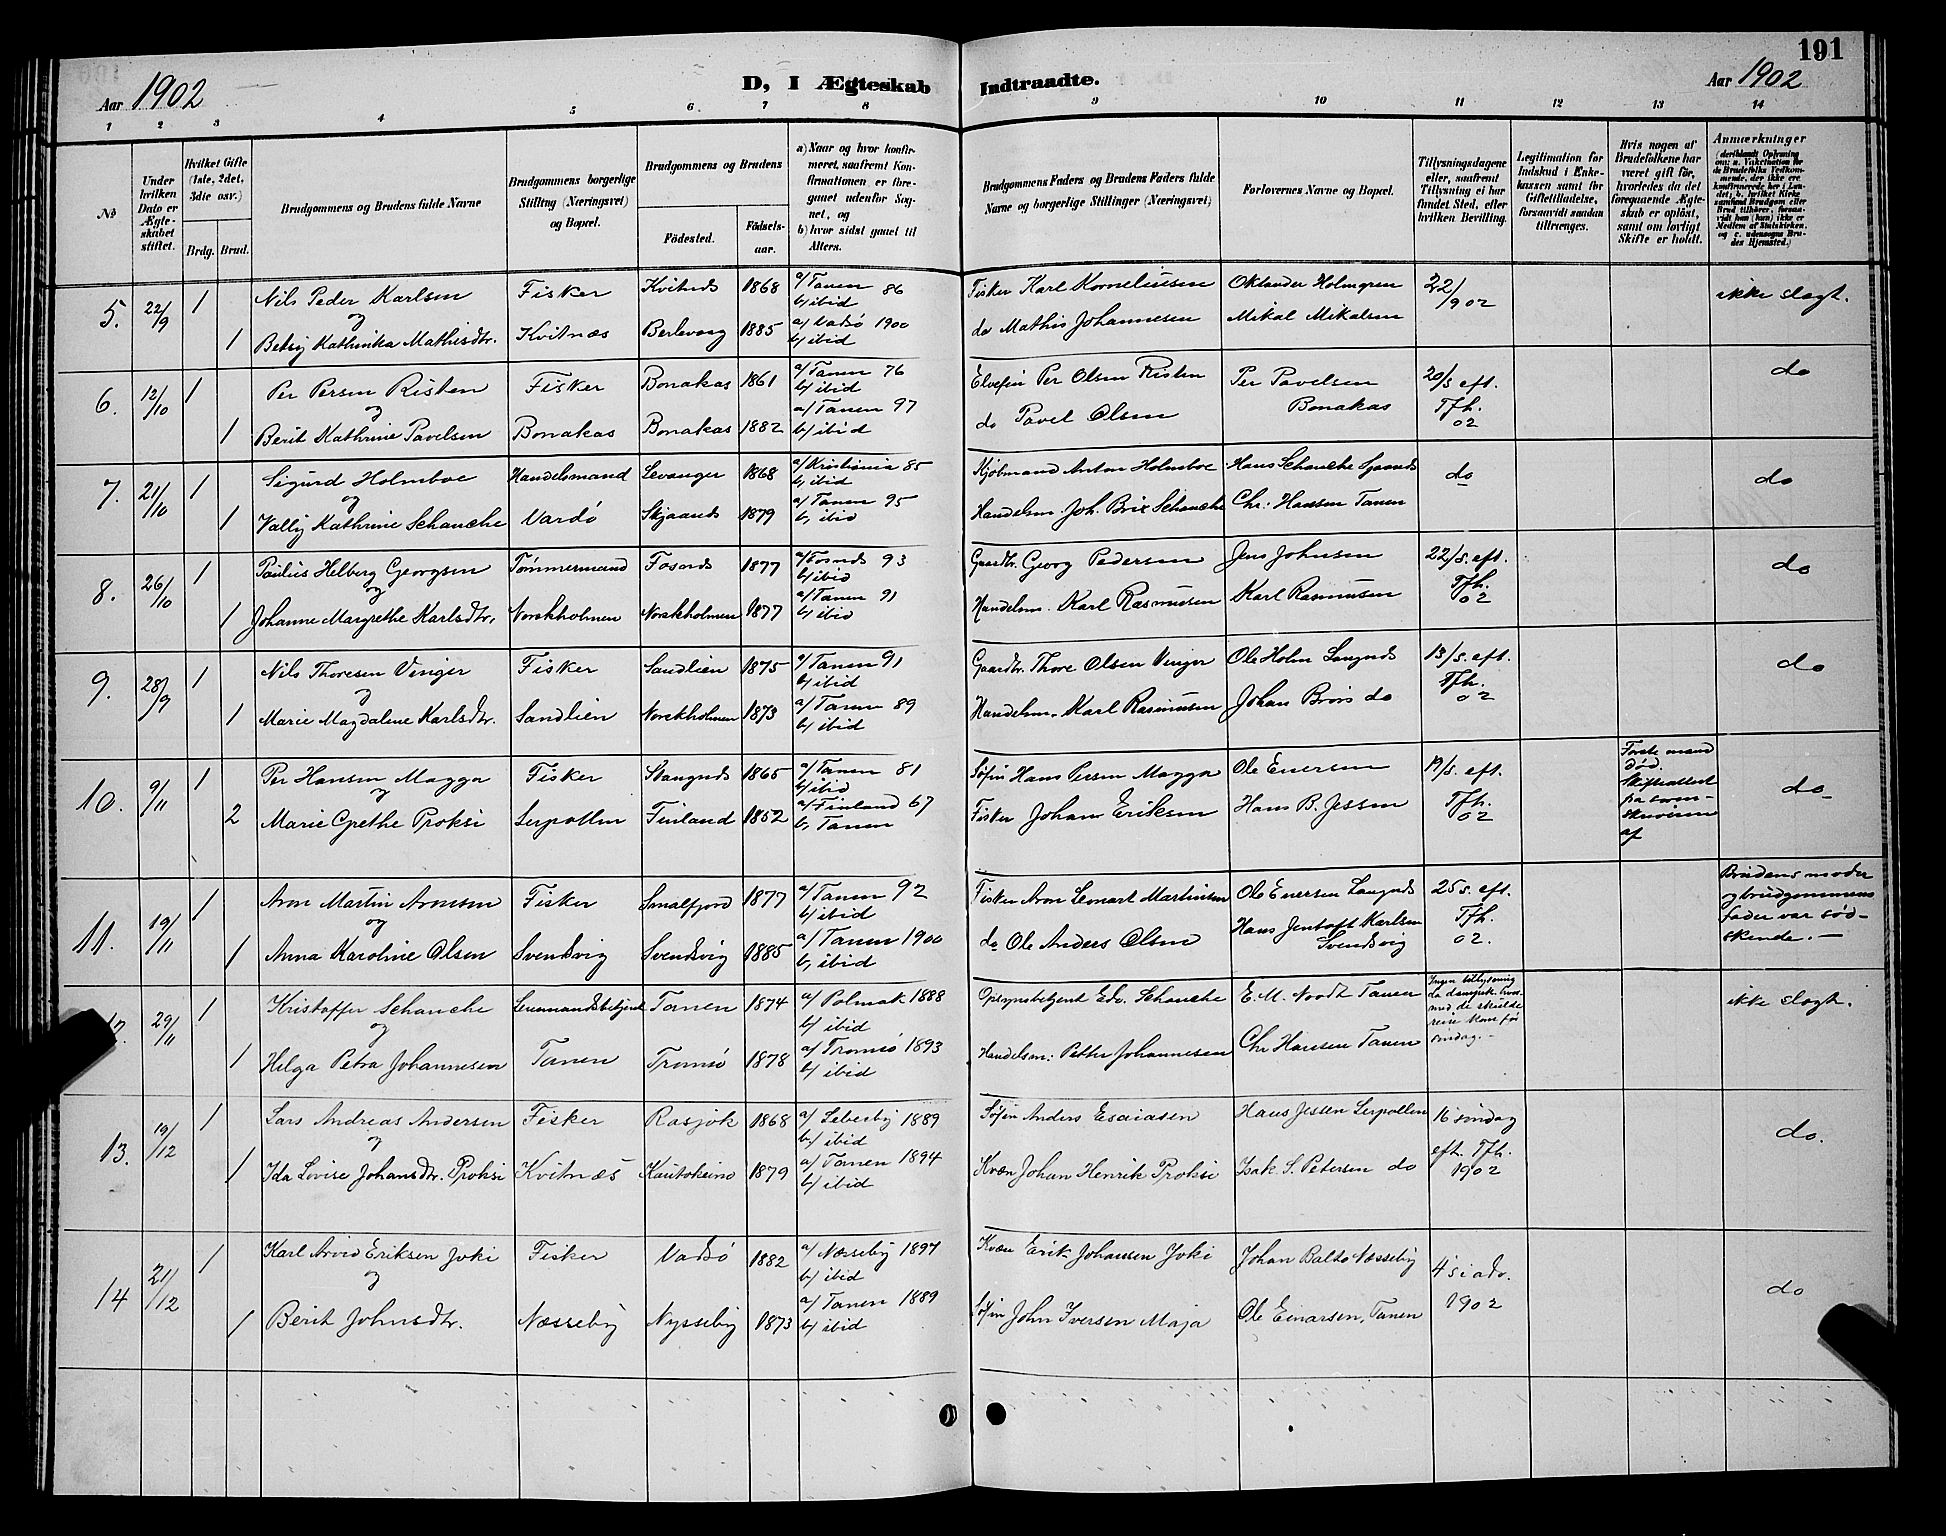 191
Aar 1902
D, I Ægteskab Indtraadte.
Aar 1902
1 2 3 4 5 6 7 8 9 10 11 12 13 14
No
Under hvilken Dato er Ægteskabet stiftet.
Hvilket Gifte (1ste, 2det, 3die osv.)
Brdg. Brud.
Brudgommens og Brudens fulde Navne
Brudgommens borgerlige Stilling (Næringsvei) og Bopæl.
Brudgommens og Brudens
Fødested.
Fødselsaar.
a) Naar og hvor konfirmeret, saafremt Konfirmationen er foregaaet udenfor Sognet, og
b) hvor sidst gaaet til Alters.
Brudgommens Faders og Brudens Faders fulde Navne og borgerlige Stillinger (Næringsvei)
Forlovernes Navne og Bopæl.
Tillysningsdagene eller, saafremt Tillysning ei har fundet Sted, efter hvilken Bevilling.
Legitimation for Indskud i Enkekassen samt for Giftetilladelse, forsaavidt saadan tiltrænges.
Hvis nogen af Brudefolkene har været gift før, hvorledes da det foregaaende Ægteskab er opløst, samt om lovligt Skifte er holdt.
Anmærkninger
5. 22/9 1 Nils Peder Karlsen Fisker Kvitnes 1868 a/ Tanen 86 b/ ibid Fisker Karl Korneliussen Oktander Holmgren 22/902 ikke slegt.
og
1 Betsy Kathinka Mathisdtr. Kvitnæs Berlevaag 1885 a/ Vadsø 1900 b/ ibid do Mathis Johannesen Mikal Mikalsen
6. 12/10 1 Per Persen Risten Fisker Bonakas 1861 a/ Tanen 76 b/ ibid Elvefin Per Olsen Risten Per Pavelsen 20/s eft. Tfh. 02 do
og
1 Berit Kathrine Pavelsen Bonakas Bonakas 1882 a/ Tanen 97 b/ ibid do Pavel Olsen Bonakas
7. 21/10 1 Sigurd Holmboe Handelsmand Levanger 1868 a/ Kristiania 85 b/ ibid Kjøbmand Anton Holmboe Hans Schanche do do
og
1 Vally Kathrine Schanche Vardö Skjaanes 1879 a/ Tanen 95 b, ibid Handelsm. Joh. Brix Schanche Chr: Hansen Tanen
8. 26/10 1 Paulus Helberg Georgsen Tömmermand Fosnes 1877 a/ Fosnes 93 b/ ibid Gaardbr. Georg Pedersen Jens Johnsen 22/s. eft. Tfh. 02 do
og
1 Johanne Margrethe Karlsdtr. Norskholmen Norskholmen 1877 a/ Tanen 91 b/ ibid Handelsm. Karl Rasmussen Karl Rasmussen
9. 28/9 1 Nils Thoresen Vinger Fisker Sandlien 1875 a/ Tanen 91 b/ ibid Gaardbr. Thore Olsen Vinger Ole Holm Langnes 13/s. eft. Tfh. 02 do
og
1 Marie Magdalene Karlsdtr. Sandlien Norskholmen 1873 a/ Tanen 89 b/ ibid Handelsm. Karl Rasmussen Johan Brors do
10. 9/11 1 Per Hansen Magga Fisker Stangnes 1865 a/ Tanen 81 b/ ibid Søfin Hans Persen Magga Ole Enersen 19/s. eft. Tfh. 02 Første mand død. Skifteattest fra sorenskriveren af do
og
2 Marie Grethe Proksi Serpollen Finland 1852 a/ Finland 67 b, Tanen Fisker Johan Eriksen Hans B. Jessen
11. 19/11 1 Aron Martin Aronsen Fisker Smalfjord 1877 a/ Tanen 92 b/ ibid Fisker Aron Leonart Martinsen Ole Enersen Langnes 25 s. eft. Tfh. 02. Brudens moder og brudgommens fader var sødskende. —
og
1 Anna Karoline Olsen Svendsvig Svendsvig 1885 a/ Tanen 1900 b, ibid do Ole Anders Olsen Hans Jentoft Karlsen Svendsvig
29/11 1 Kristoffer Schanche Lensmandsbetjent Tanen 1874 a/ Polmak 1888 b/ ibid Opsynsbetjent Edv. Schanche E. M. Noodt Tanen Ingen tillysning da dampsk. hvormed de skulde reise kom før söndag. ikke slegt.
og
1 Helga Petra Johannesen Tanen Tromsø 1878 a/ Tromsø 1893 b/ ibid Handelsm: Petter Johannesen Chr Hansen Tanen
13. 19/12 1 Lars Andreas Andersen Fisker Rasjok 1868 a/ Lebesby 1889 b/ ibid Søfin Anders Esaiasen Hans Jessen Serpollen 16 söndag eft. Tfh. 1902 do.
og
1 Ida Lovise Johansdtr. Proksi Kvitnæs Kautokeino 1879 a/ Tanen 1894 b/ ibid Kvæn Johan Henrik Proksi Isak S. Petersen do
14 21/12 1 Karl Arvid Eriksen Joki Fisker Vadsö 1882 a/ Næsseby 1897 b/ ibid Kvæn Erik Johansen Joki Johan Balto Næsseby 4 s i adv. 1902 do
og
1 Berit Johnsdtr. Næsseby Nysseby 1873 a/ Tanen 1889 b/ ibid Søfin John Iversen Maja Ole Einarsen, Tanen